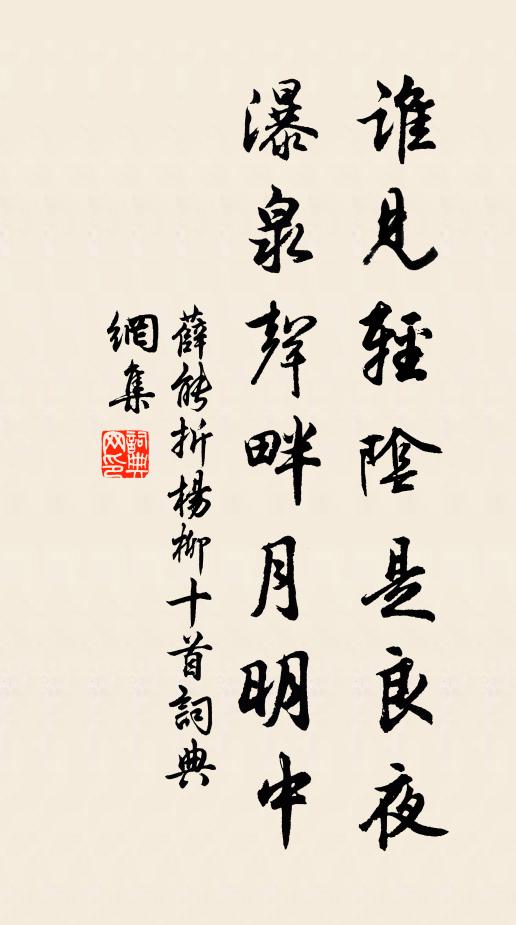 誰見輕陰是良夜
瀑泉聲畔月明中
薛能折楊柳十首詞典
網集
詞典网印